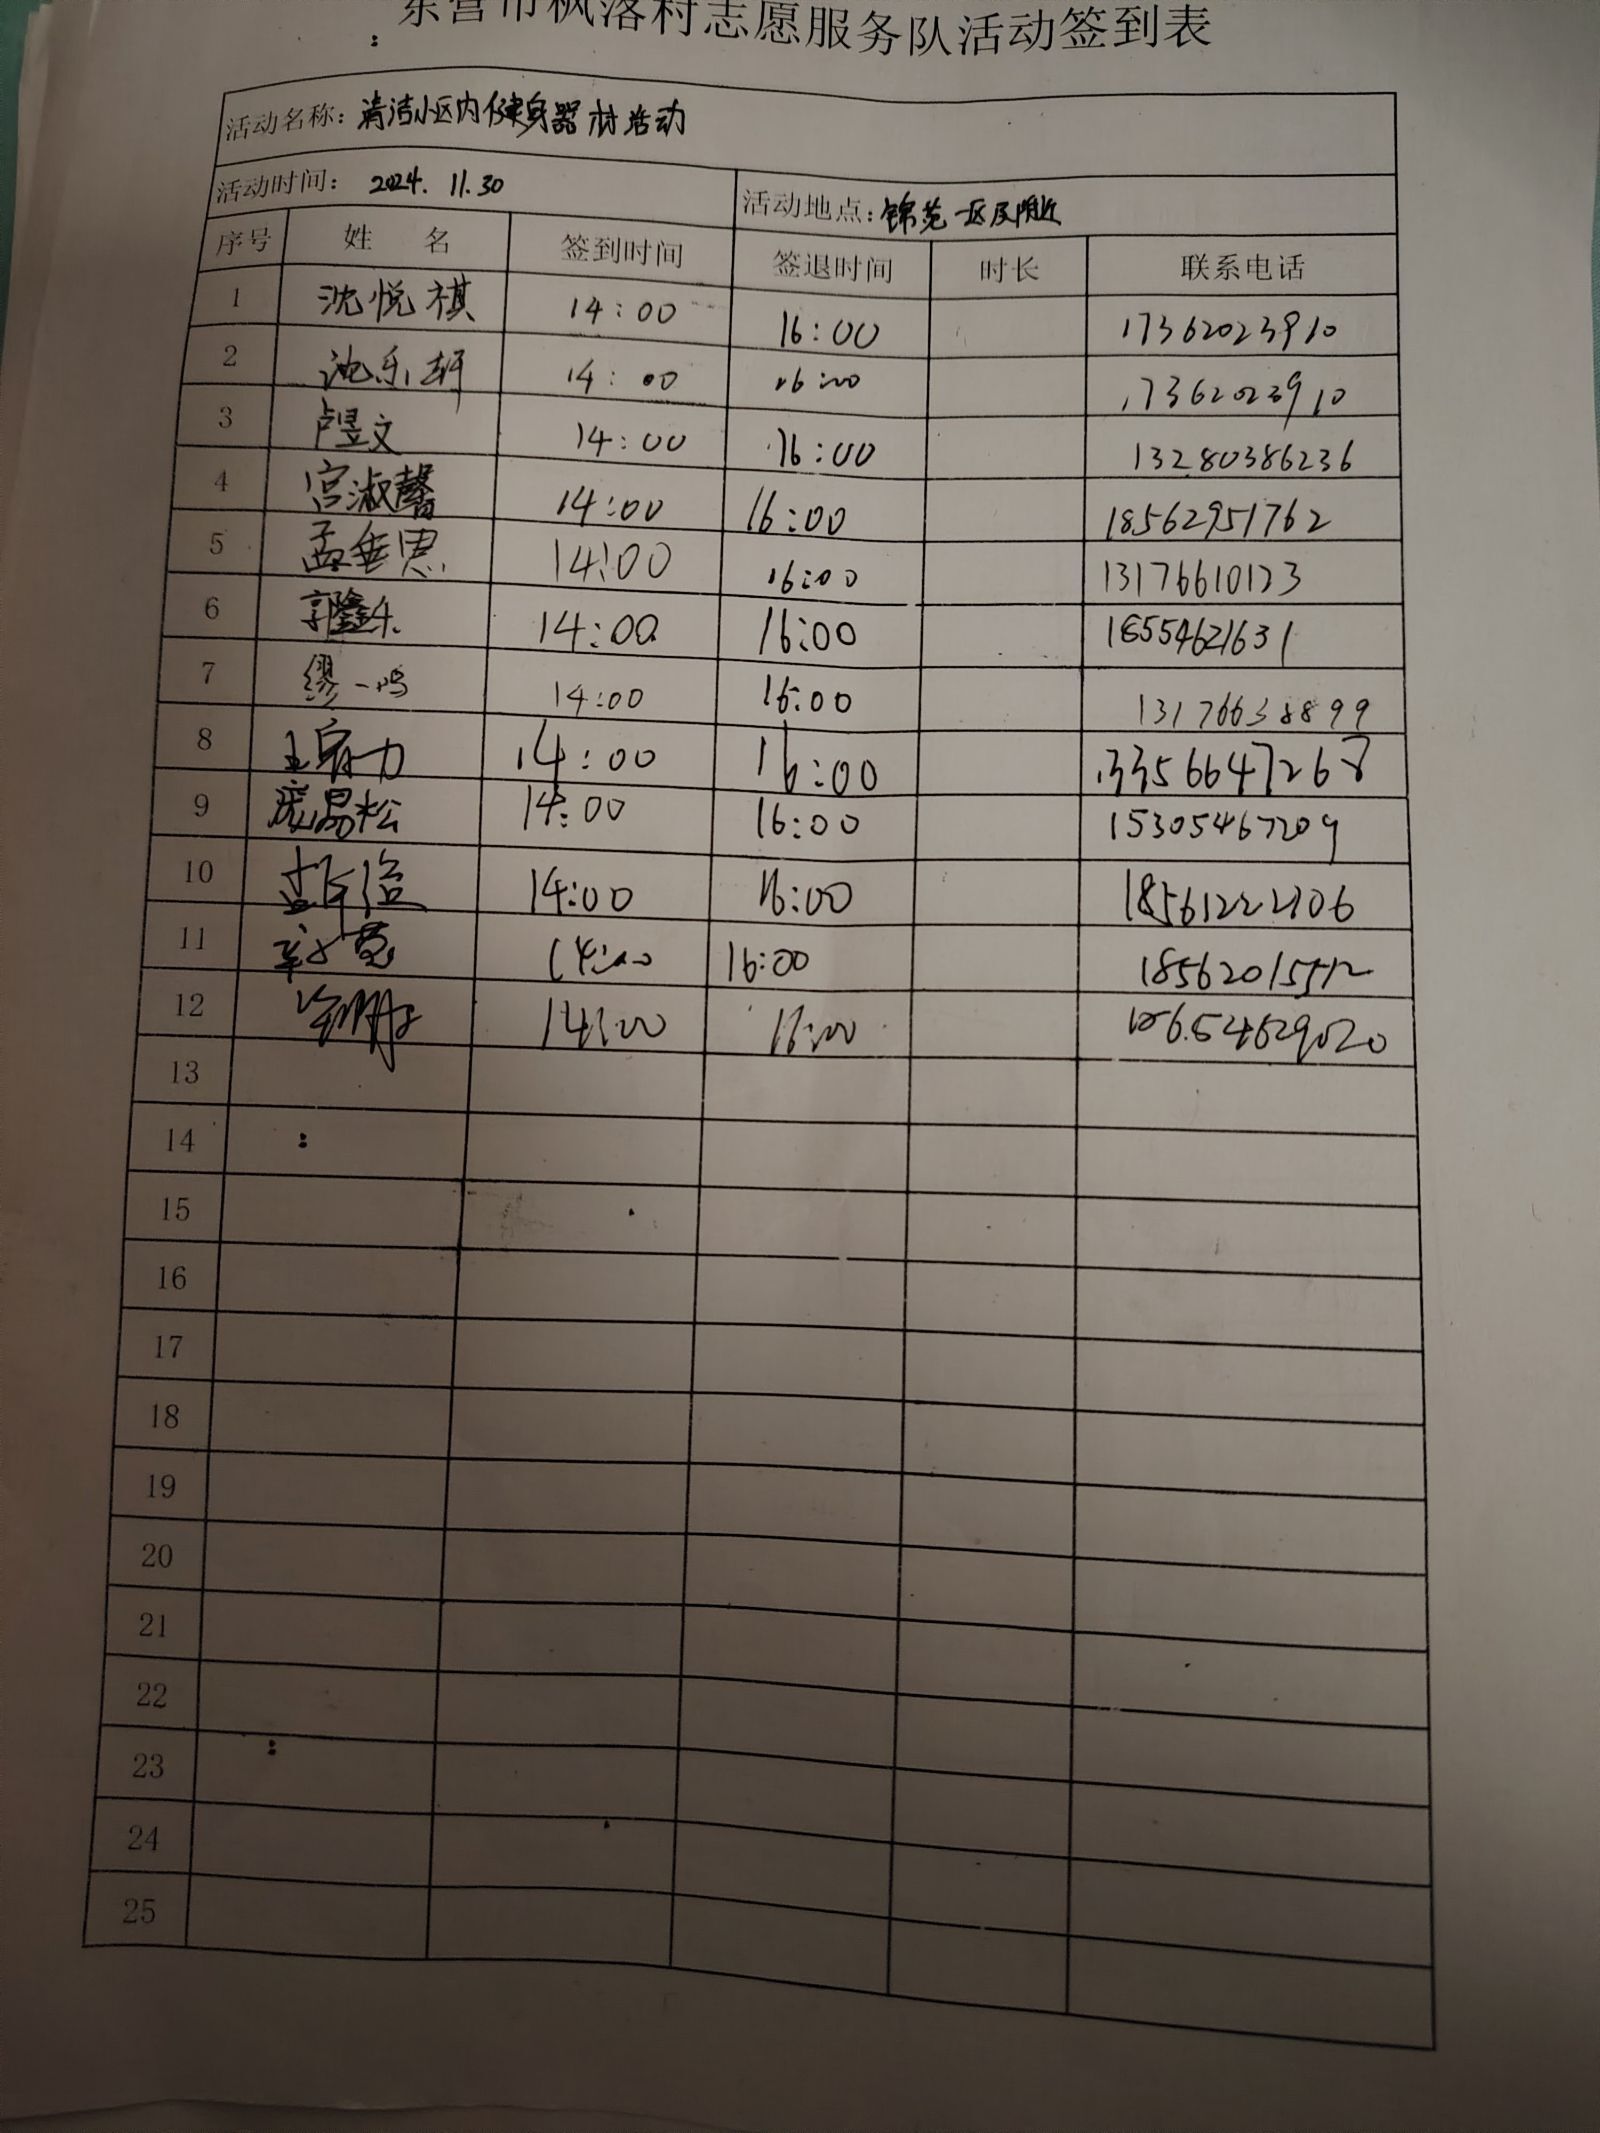 东营市枫落村志愿服务队活动签到表
活动名称：清洁小区内健身器材活动
活动时间： 2024. 11.30 活动地点：锦苑一区及附近
序号 姓 名 签到时间 签退时间 时长 联系电话
1 沈悦祺 14:00 16:00 17362023910
2 沈乐妍 14:00 16:00 17362023910
3 卢昱文 14:00 16:00 13280386236
4 宫淑馨 14:00 16:00 18562951762
5 孟垂思 14:00 16:00 13176610123
6 郭鑫 14:00 16:00 18554621631
7 缪一鸣 14:00 16:00 13176638899
8 王 力 14:00 16:00 13356647268
9 庞昜松 14:00 16:00 15305467209
10 14:00 16:00 18561222106
11 14:00 16:00
12 14:00 16:00
13
14
15
16
17
18
19
20
21
22
23
24
25